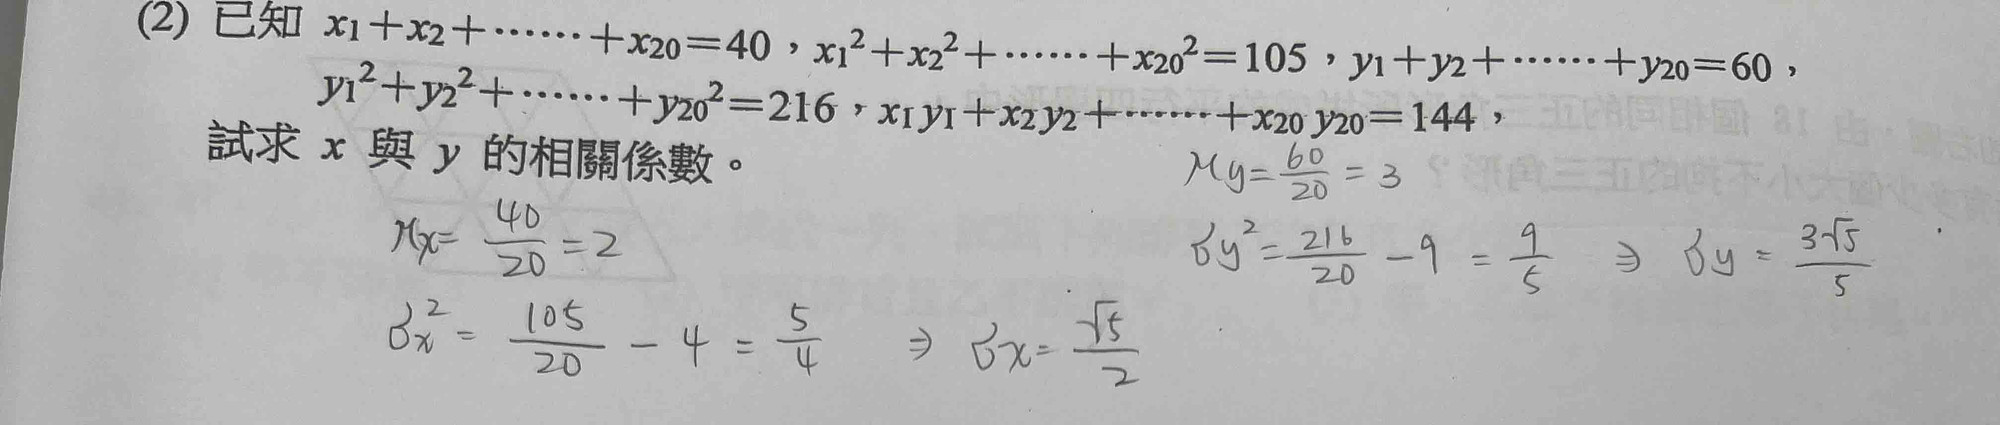 (2) 已知 x₁+x₂+⋯⋯+x₂₀=40,x₁²+x₂²+⋯⋯+x₂₀²=105,y₁+y₂+⋯⋯+y₂₀=60,
y₁²+y₂²+⋯⋯+y₂₀²=216,x₁y₁+x₂y₂+⋯⋯+x₂₀y₂₀=144,
試求 x 與 y 的相關係數。
μy=60/20=3
μx=40/20=2
σy²=216/20-9=9/5 ⇒ σy=3√5/5
σx²=105/20-4=5/4 ⇒ σx=√5/2